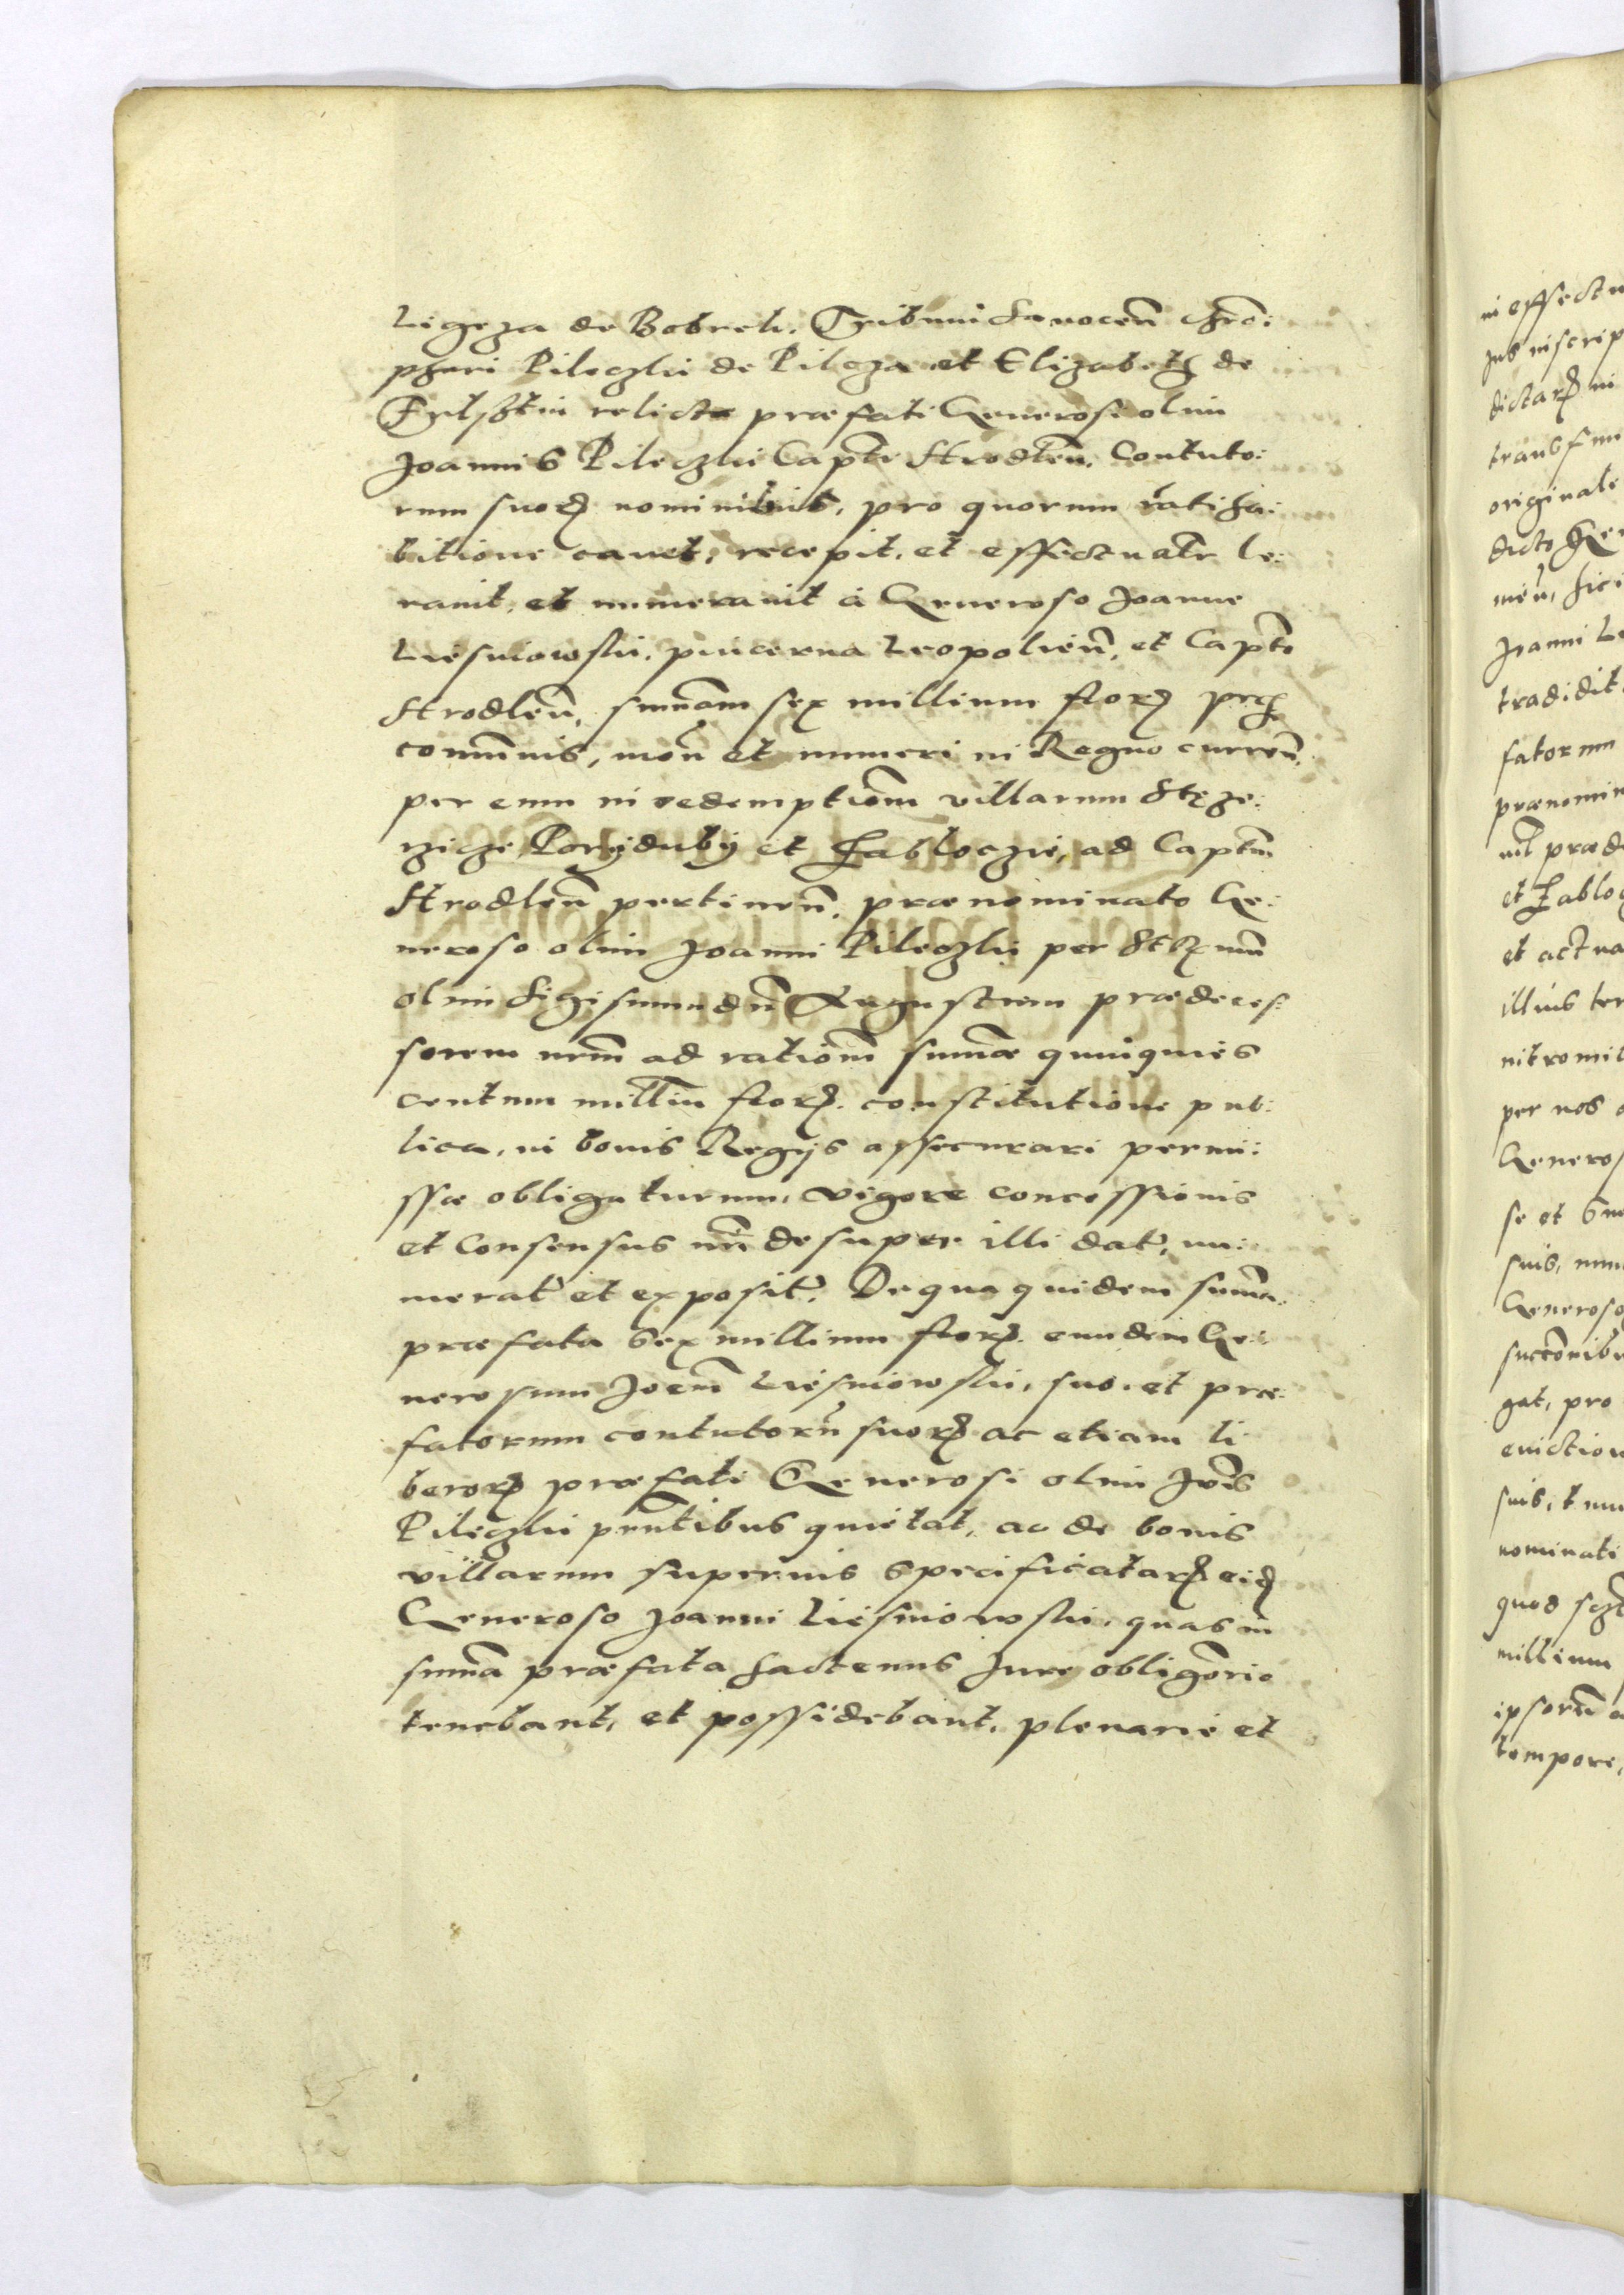 Ligęza de Bobrek. Tribuni Sanocen̄ Chr̄o:
phori Pileczki de Pilcza et Elizabeth de
relictæ præfati Generosi olim
Joannis Pileczki Capt̄i Hrodlen̄. Contuto:
rum suoꝝ nominibus, pro quorum ratiha:
bitione cauet, recepit, et effectualr̄ le:
uauit, et numerauit à Generoso Joanne
Liesniowski, pincerna Leopolien̄. et Capt̄o
Hrodlen̄, sum̄am sex millium floꝝ
com̄unis, mon̄ et numeri in Regno curren̄.
per eum in redemptiōm villarum Stęże:
rzicze Poryduby et Zabloczie, ad Captm̄
Hrodlen̄ pertinen̄. prænominato Ge:
neroso olim Joanni Pileczki per
olim Sigismundū Augustum prædeces:
sorem nrm̄ ad ratiōnm sum̄æ quinquies
centum milliū floꝝ. constitutione pub:
lica, in bonis Regijs assecurari permi:
ssæ obligaturum, vigore concessionis
et Consensus nr̄i desuper illi dat̄, nu:
merat̄ et exposit̄. De qua quidem sum̄a
præfata sex millium floꝝ. eundem Ge:
nerosum Joem̄ Liesniowski, suo. et præ:
fatorum contutorū suoꝝ ac etiam li
beroꝝ præfati Generosi olim Jōis
Pileczki pn̄tibus quietat, ac de bonis
villarum superius specificataꝝ eidꝫ
Generoso Joanni Liesniowski, quas in
sum̄a præfata hactenus Jure obligōrio
tenebant, et possidebant, plenarie et
in effectu
ius inscrip
dictaꝝ in
transfun
originale
dicto Gen
Joanni Le
tradidit
fatorum
prænomin
et Zabloc
illius ter
intromit
per nos
Generos
se et
suis,
Generoso
gat, pro
euiction
suis,
nominati
quod
millium
ipsorū
tempore,